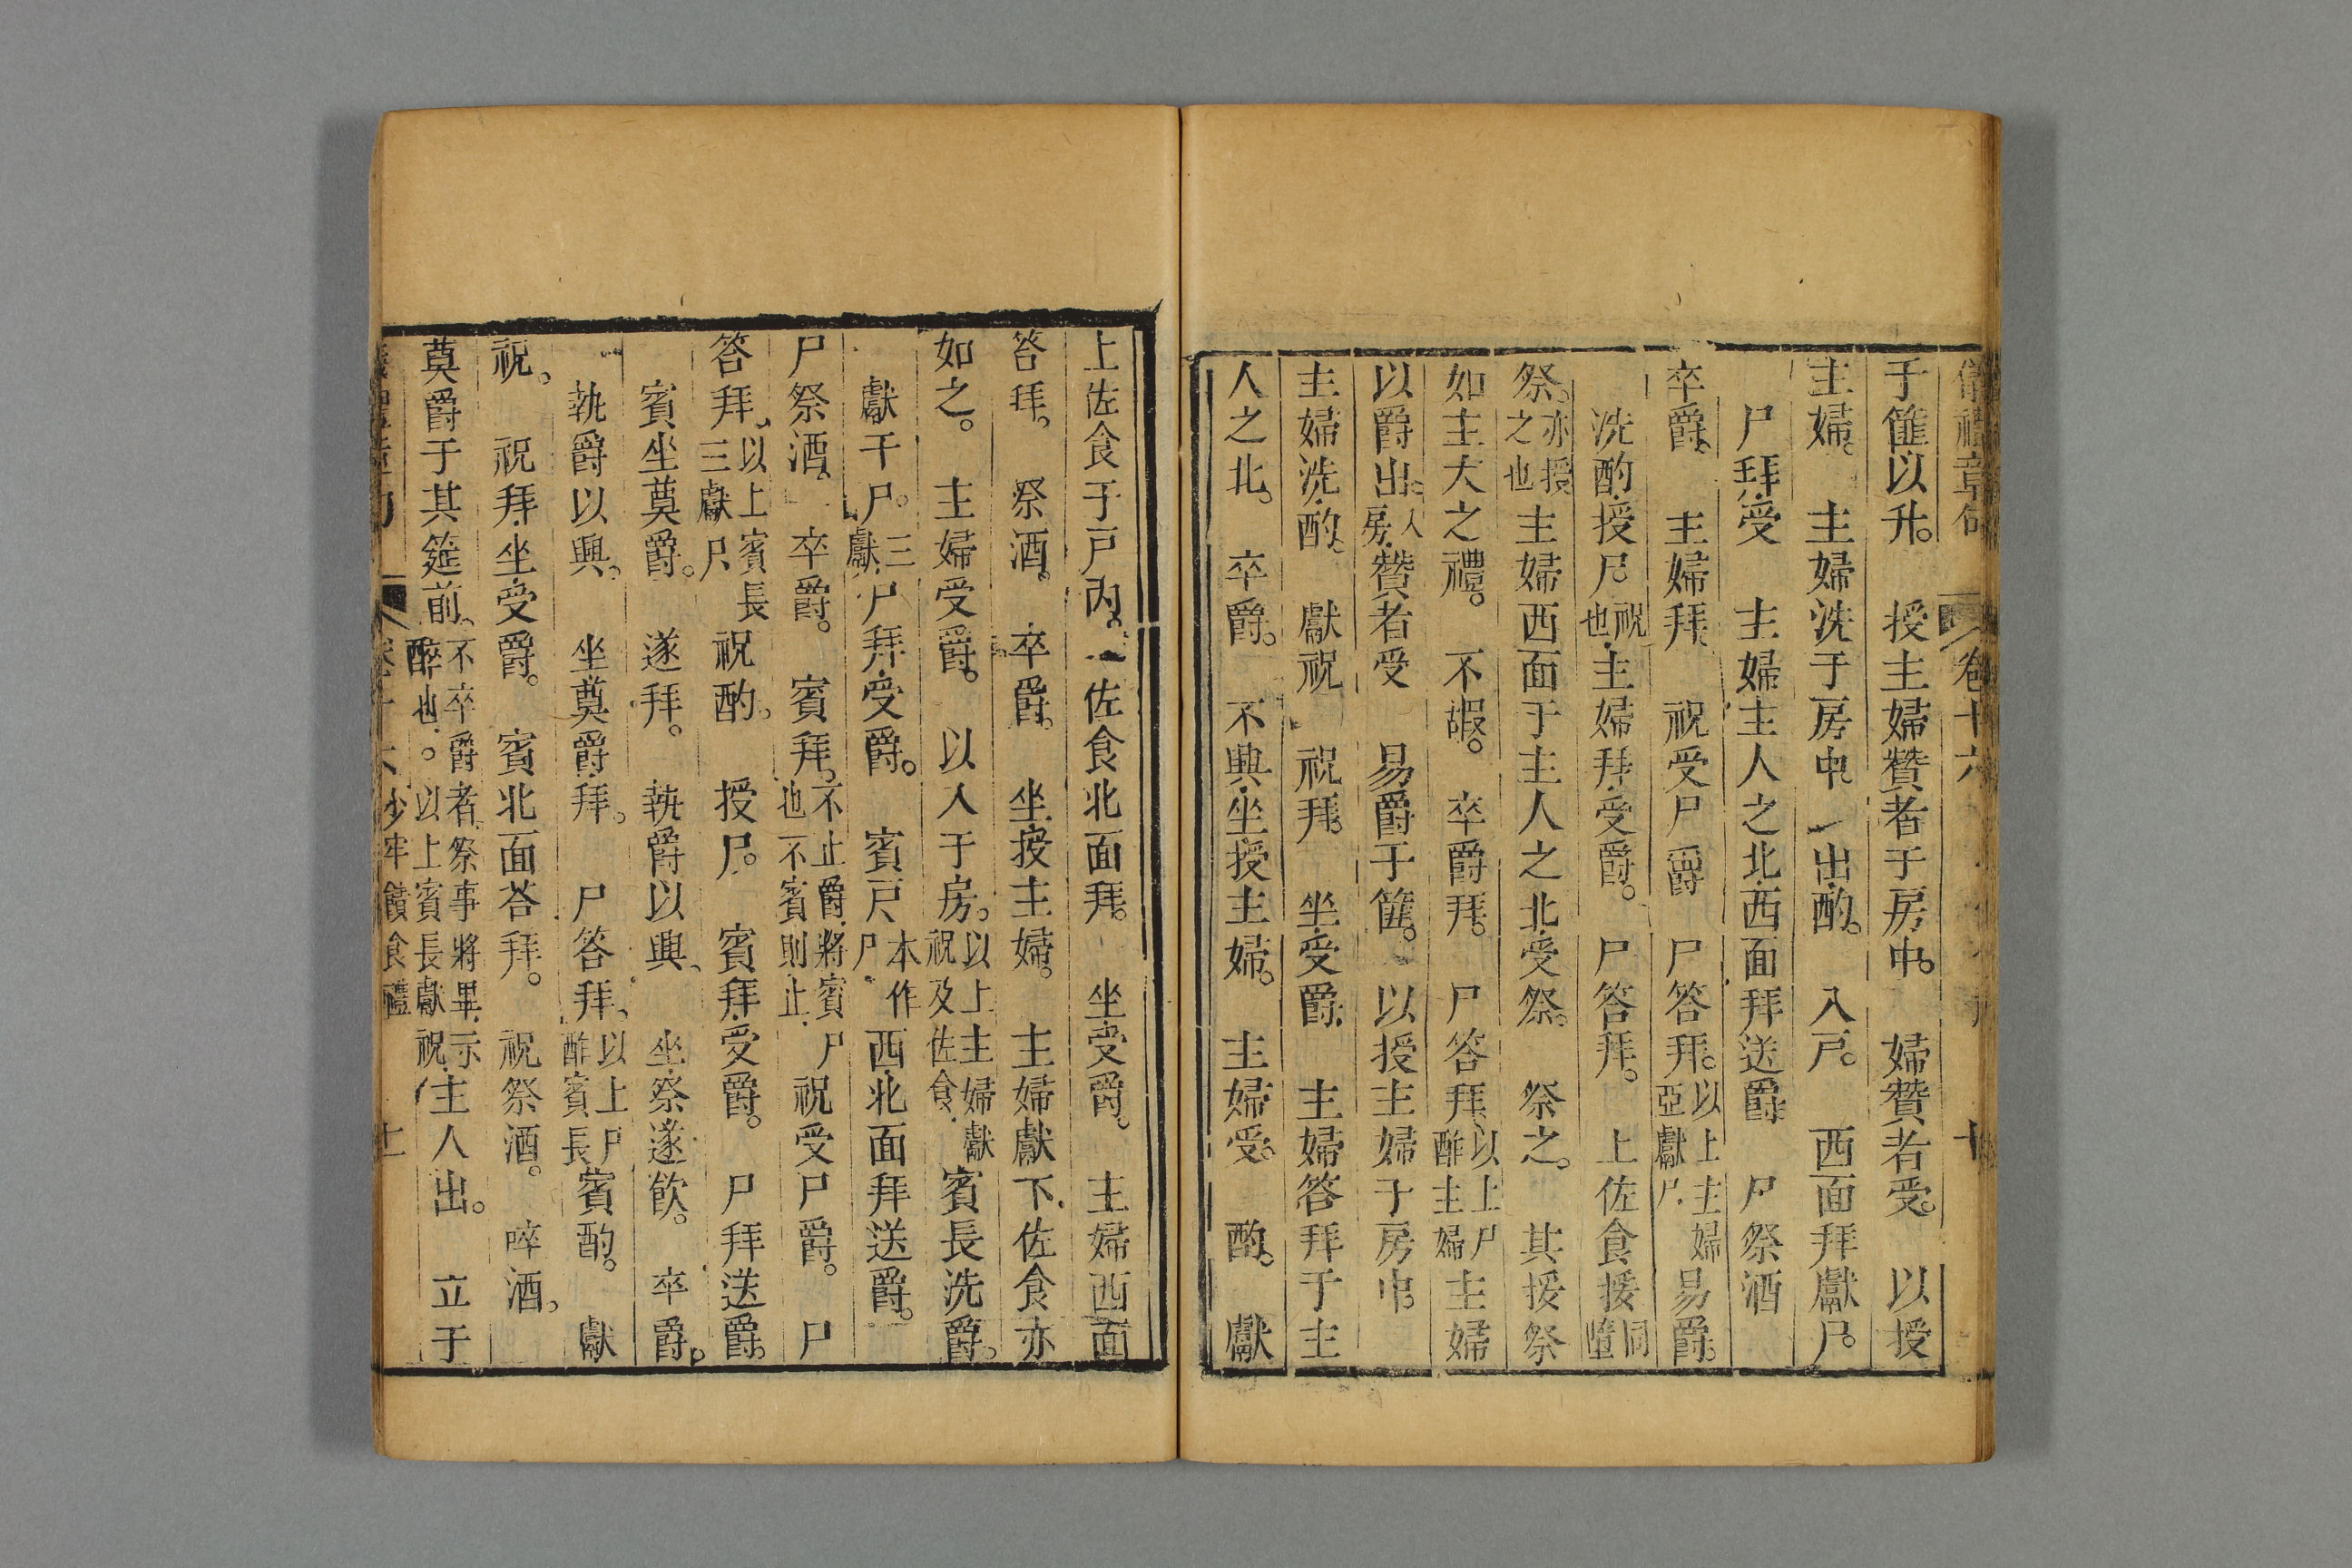 儀禮章句 卷十六 十
于篚以升。 授主婦贊者于房中。 婦贊者受。 以授
主婦。 主婦洗于房中 出酌。 入戶。 西面拜獻尸。
尸拜受 主婦主人之北西面拜送爵 尸祭酒
卒爵。 主婦拜 祝受尸爵 尸答拜。以上主婦亞獻尸 易爵。
洗酌授尸。祝也 主婦拜受爵。 尸答拜。 上佐食授同墮
祭。亦授之也 主婦西面于主人之北受祭。 祭之。 其授祭
如主大之禮。 不嘏。 卒爵拜。 尸答拜、以上尸酢主婦 主婦
以爵出。入房 贊者受 易爵于篚。 以授主婦于房中。
主婦洗酌。 獻祝 祝拜。 坐受爵 主婦答拜于主
人之北。 卒爵。 不興坐授主婦。 主婦受。 酌。 獻
上佐食于戶內。 佐食北面拜。 坐受爵。 主婦西面
答拜。 祭酒。 卒爵。 坐授主婦。 主婦獻下佐食亦
如之。 主婦受爵。 以入于房。以上主婦獻祝及佐食 賓長洗爵。
獻于尸。三獻 尸拜受爵。 賓戶本作尸 西北面拜送爵。
尸祭酒、 卒爵。 賓拜。不止爵將賓尸也不賓則止 祝受尸爵。 尸
答拜、以上賓長三獻尸 祝酌。 授尸。 賓拜受爵。 尸拜送爵。
賓坐奠爵。 遂拜。 執爵以興、 坐祭遂飲。 卒爵。
執爵以興。 坐奠爵拜。 尸答拜、以上尸酢賓長 賓酌。 獻
祝。 祝拜坐受爵。 賓北面答拜。 祝祭酒。 啐酒。
奠爵于其筵前、不卒爵者祭事將畢示醉也。以上賓長獻祝 主人出。 立于
少牢饋食禮 十一